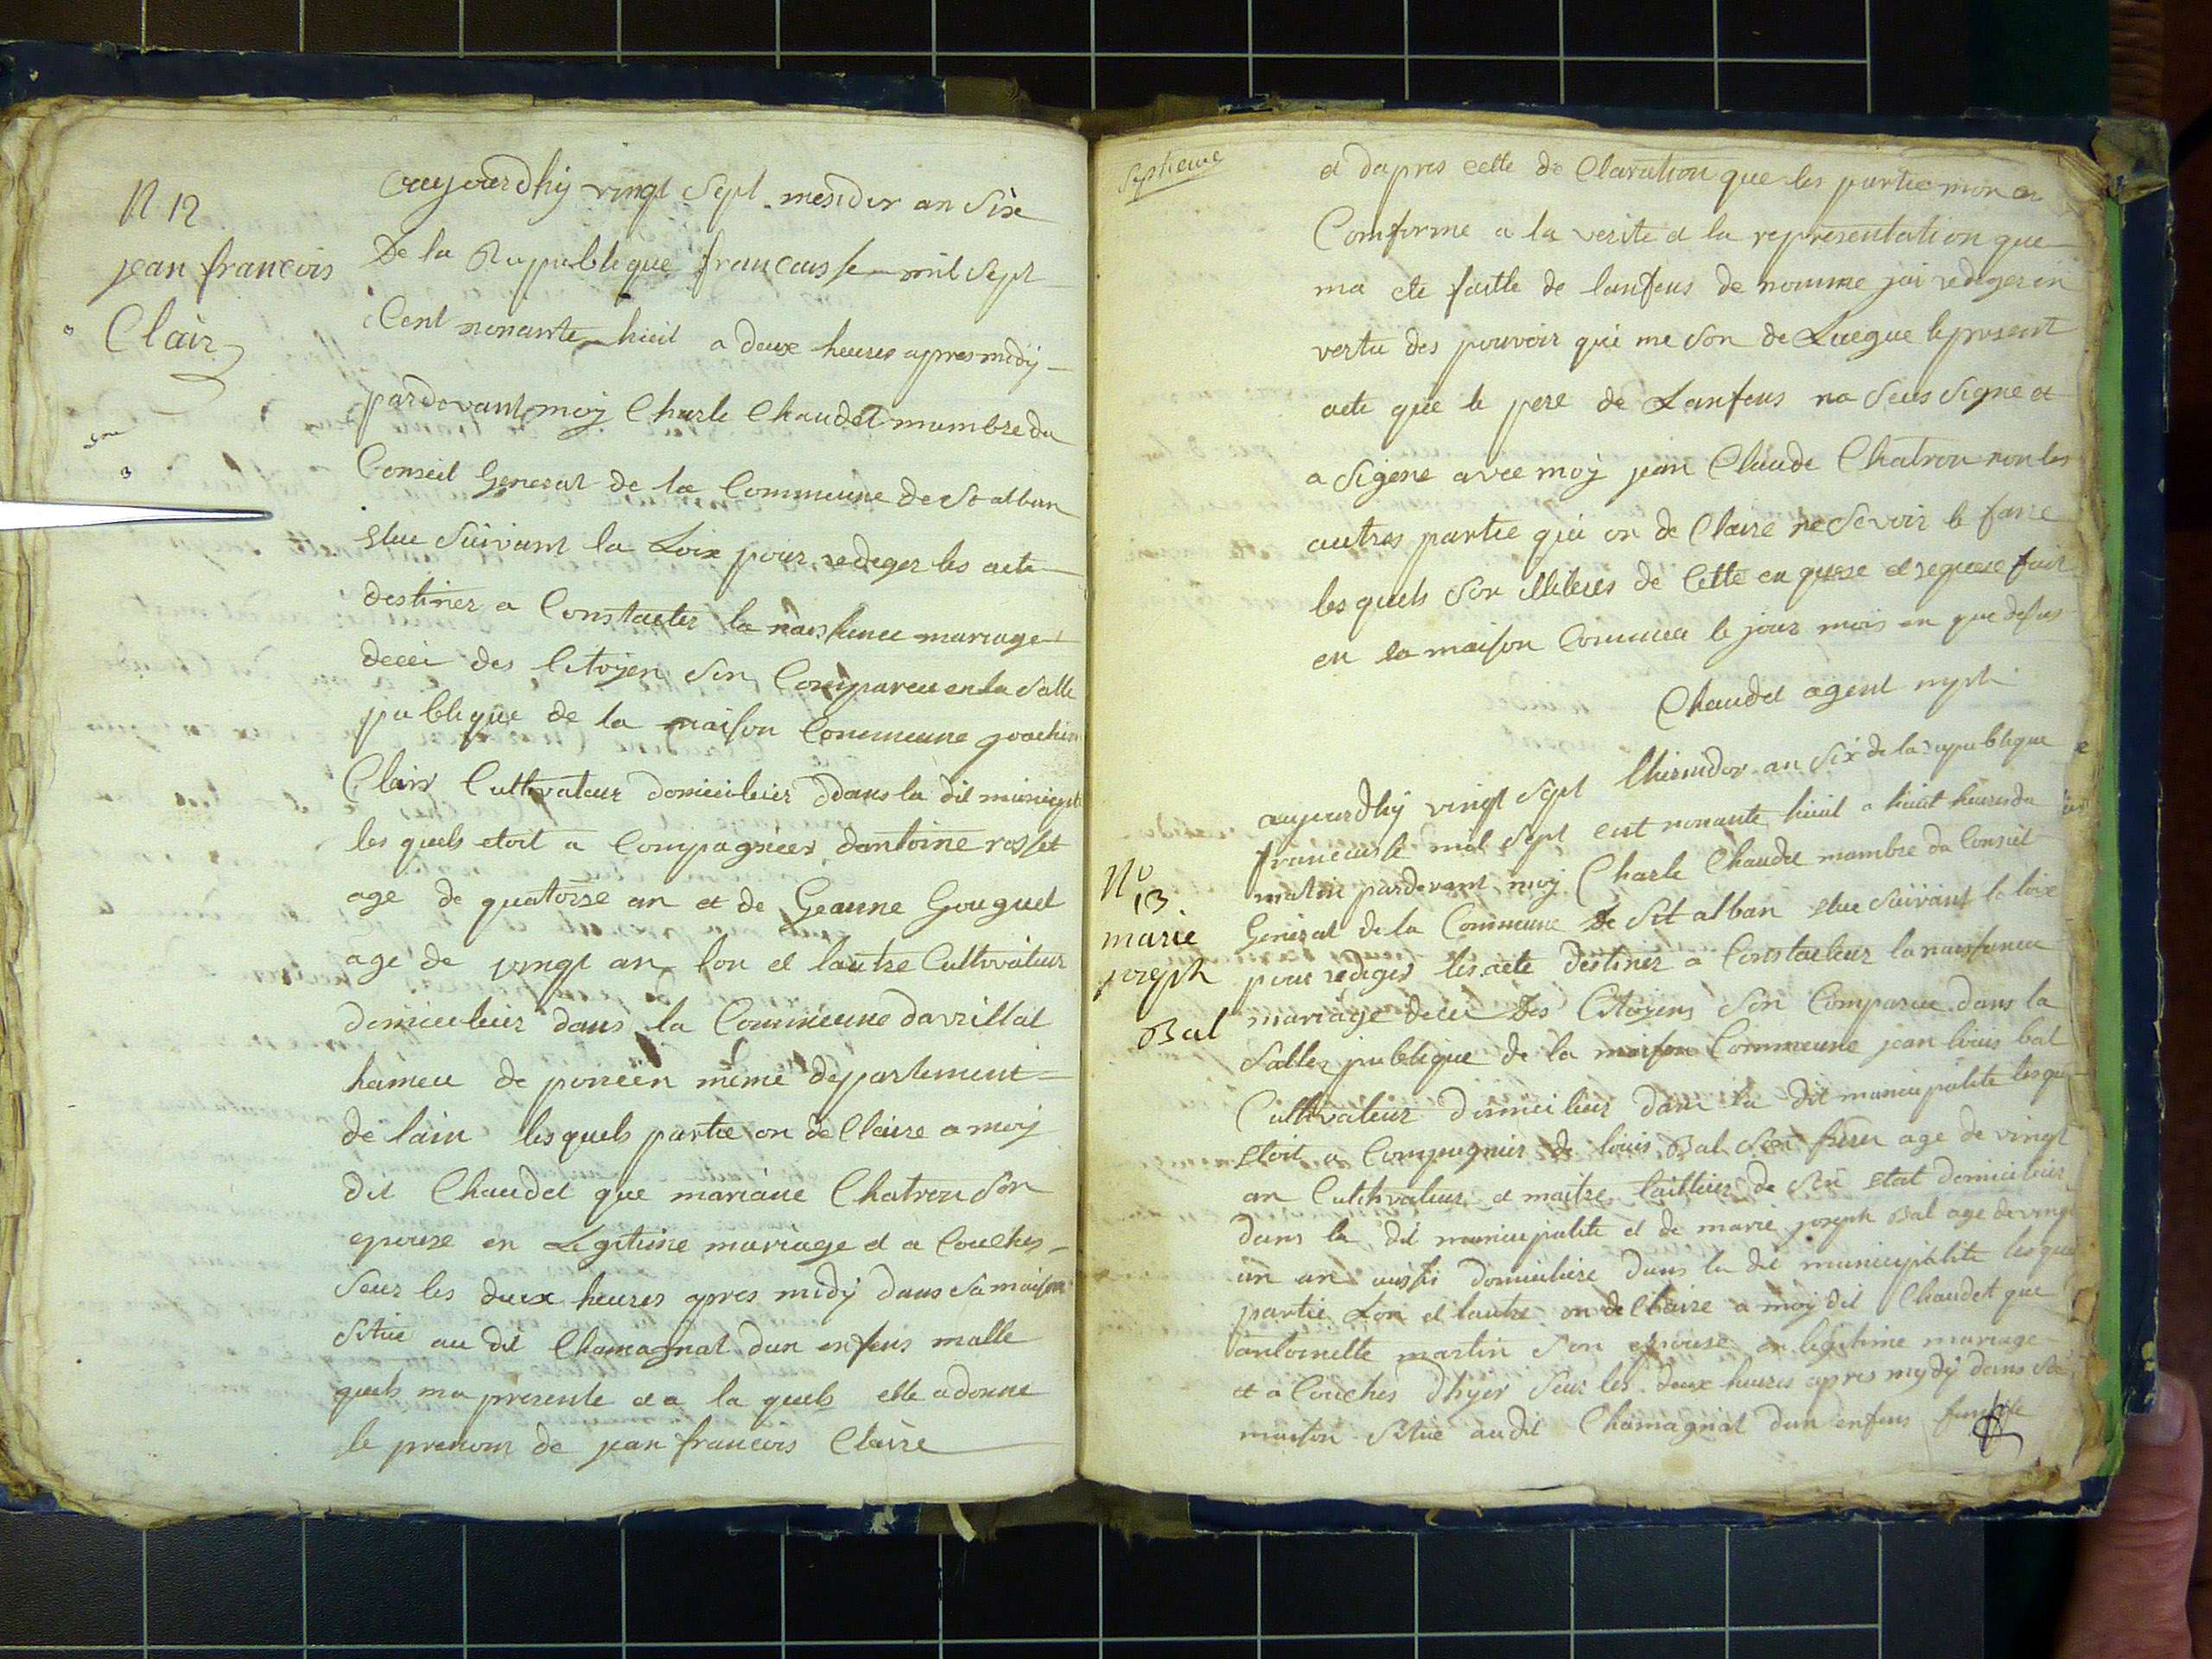 N 12
jean francois
Clair
aujourdhuy vingt Sept mesidor an Sixe
De la Republique francaisse mil Sept
Cent nonante huit a deux heures apres midÿ
pardevant moÿ Charle Chaudet mambre du
Conseil General de la Commeune de St alban
elue Suivant la Loix pour rediger les acte
destiner a Constacter la naissence mariage
decei des Citoyen Son Compareu en la Salle
publique de la maison Commeune joachin
Clair Cultivateur domiciliéer Ddans la dit municip
les quels etoit a Compagnéer dantoine rosset
age de quatorse an et de Geanne Gouguet
age de vingt an lon et lautre Cultivateur
domicilieir dans la Commeune davrillat
hameu de poncen meme departement
de lain les quels partie on de Claire a moÿ
dit Chaudet que mariane Chatron Son
epouse en Legitime mariage et a Couches
Seur les deux heures apres midÿ dans Sa maison
Situé au dit Chamagnat dun enfens malle
quels ma presente et a la quels elle a donne
le prenom de jean francois Claire
Septieme
et dapres cette de Claration que les partie mon
Comforme a la verite et la representation que
ma ete faitte de lenfens de nomme jai rediger en
vertu des pouvoir qui me Son de Luegue le present
acte que le pere de Lenfens na Seus Signe et
a Sigene avec moÿ jean Claude Chatron non les
autres partie qui on de Claire ne Sevoir le faire
les quels Son de Cette en quese et requese fait
en la maison Commeu le jour mois en que desus
Chaudet agent
aujourdhÿ vingt Sept thermidor an Six de la republique
francaisse mil Sept cent nonante huit a huit heures du
matin pardevant moÿ Charle Chaudet mambre du Conseil
General de la Commeune De St alban elue Suivant la loix
pour rediger les acte destiner a Constacteur la naissence
mariage decei Des Citoyens Son Compareu dans la
Salle publique de la maison Commeune jean louis bal
Cultivateur domicilier dans la dit municipalite lesque
etoit a Compagnier de louis Bal Son frere age de vingt
an Cultivateur et maitre tailleur de Son etat domicilier
dans la dit municipalite et de marie joseph Bal age de vingt
un an aussi domiciliere dans la dit municipalite les quel
partie Lon et lautre on de Claire a moÿ dit Chaudet que
antoinette martin Son epouse en legitime mariage
et a Couches dhyer Seur les deux heures apres mydÿ dans Sa
maison Situé audit Chamagnat dun enfens femelle
No
13
marie
joseph
Bal